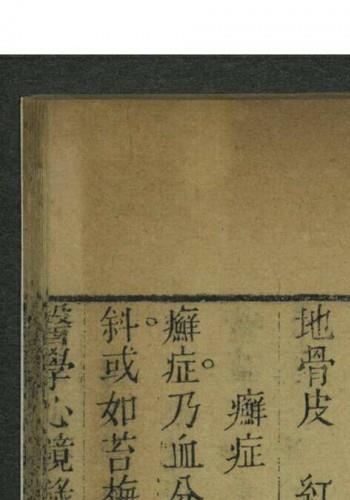 地骨皮 紅
癬症
癬症。乃血分
斜。或如苔梅
醫學心鏡錄